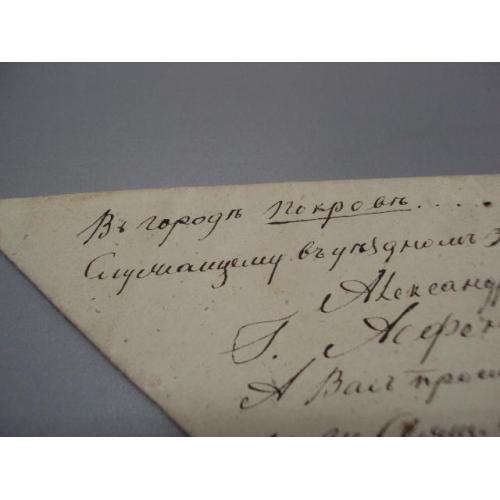 Въ городѣ Покровѣ....
Служащему въ уѣздномъ З
Александр
Г. Асфен
А Васъ прош